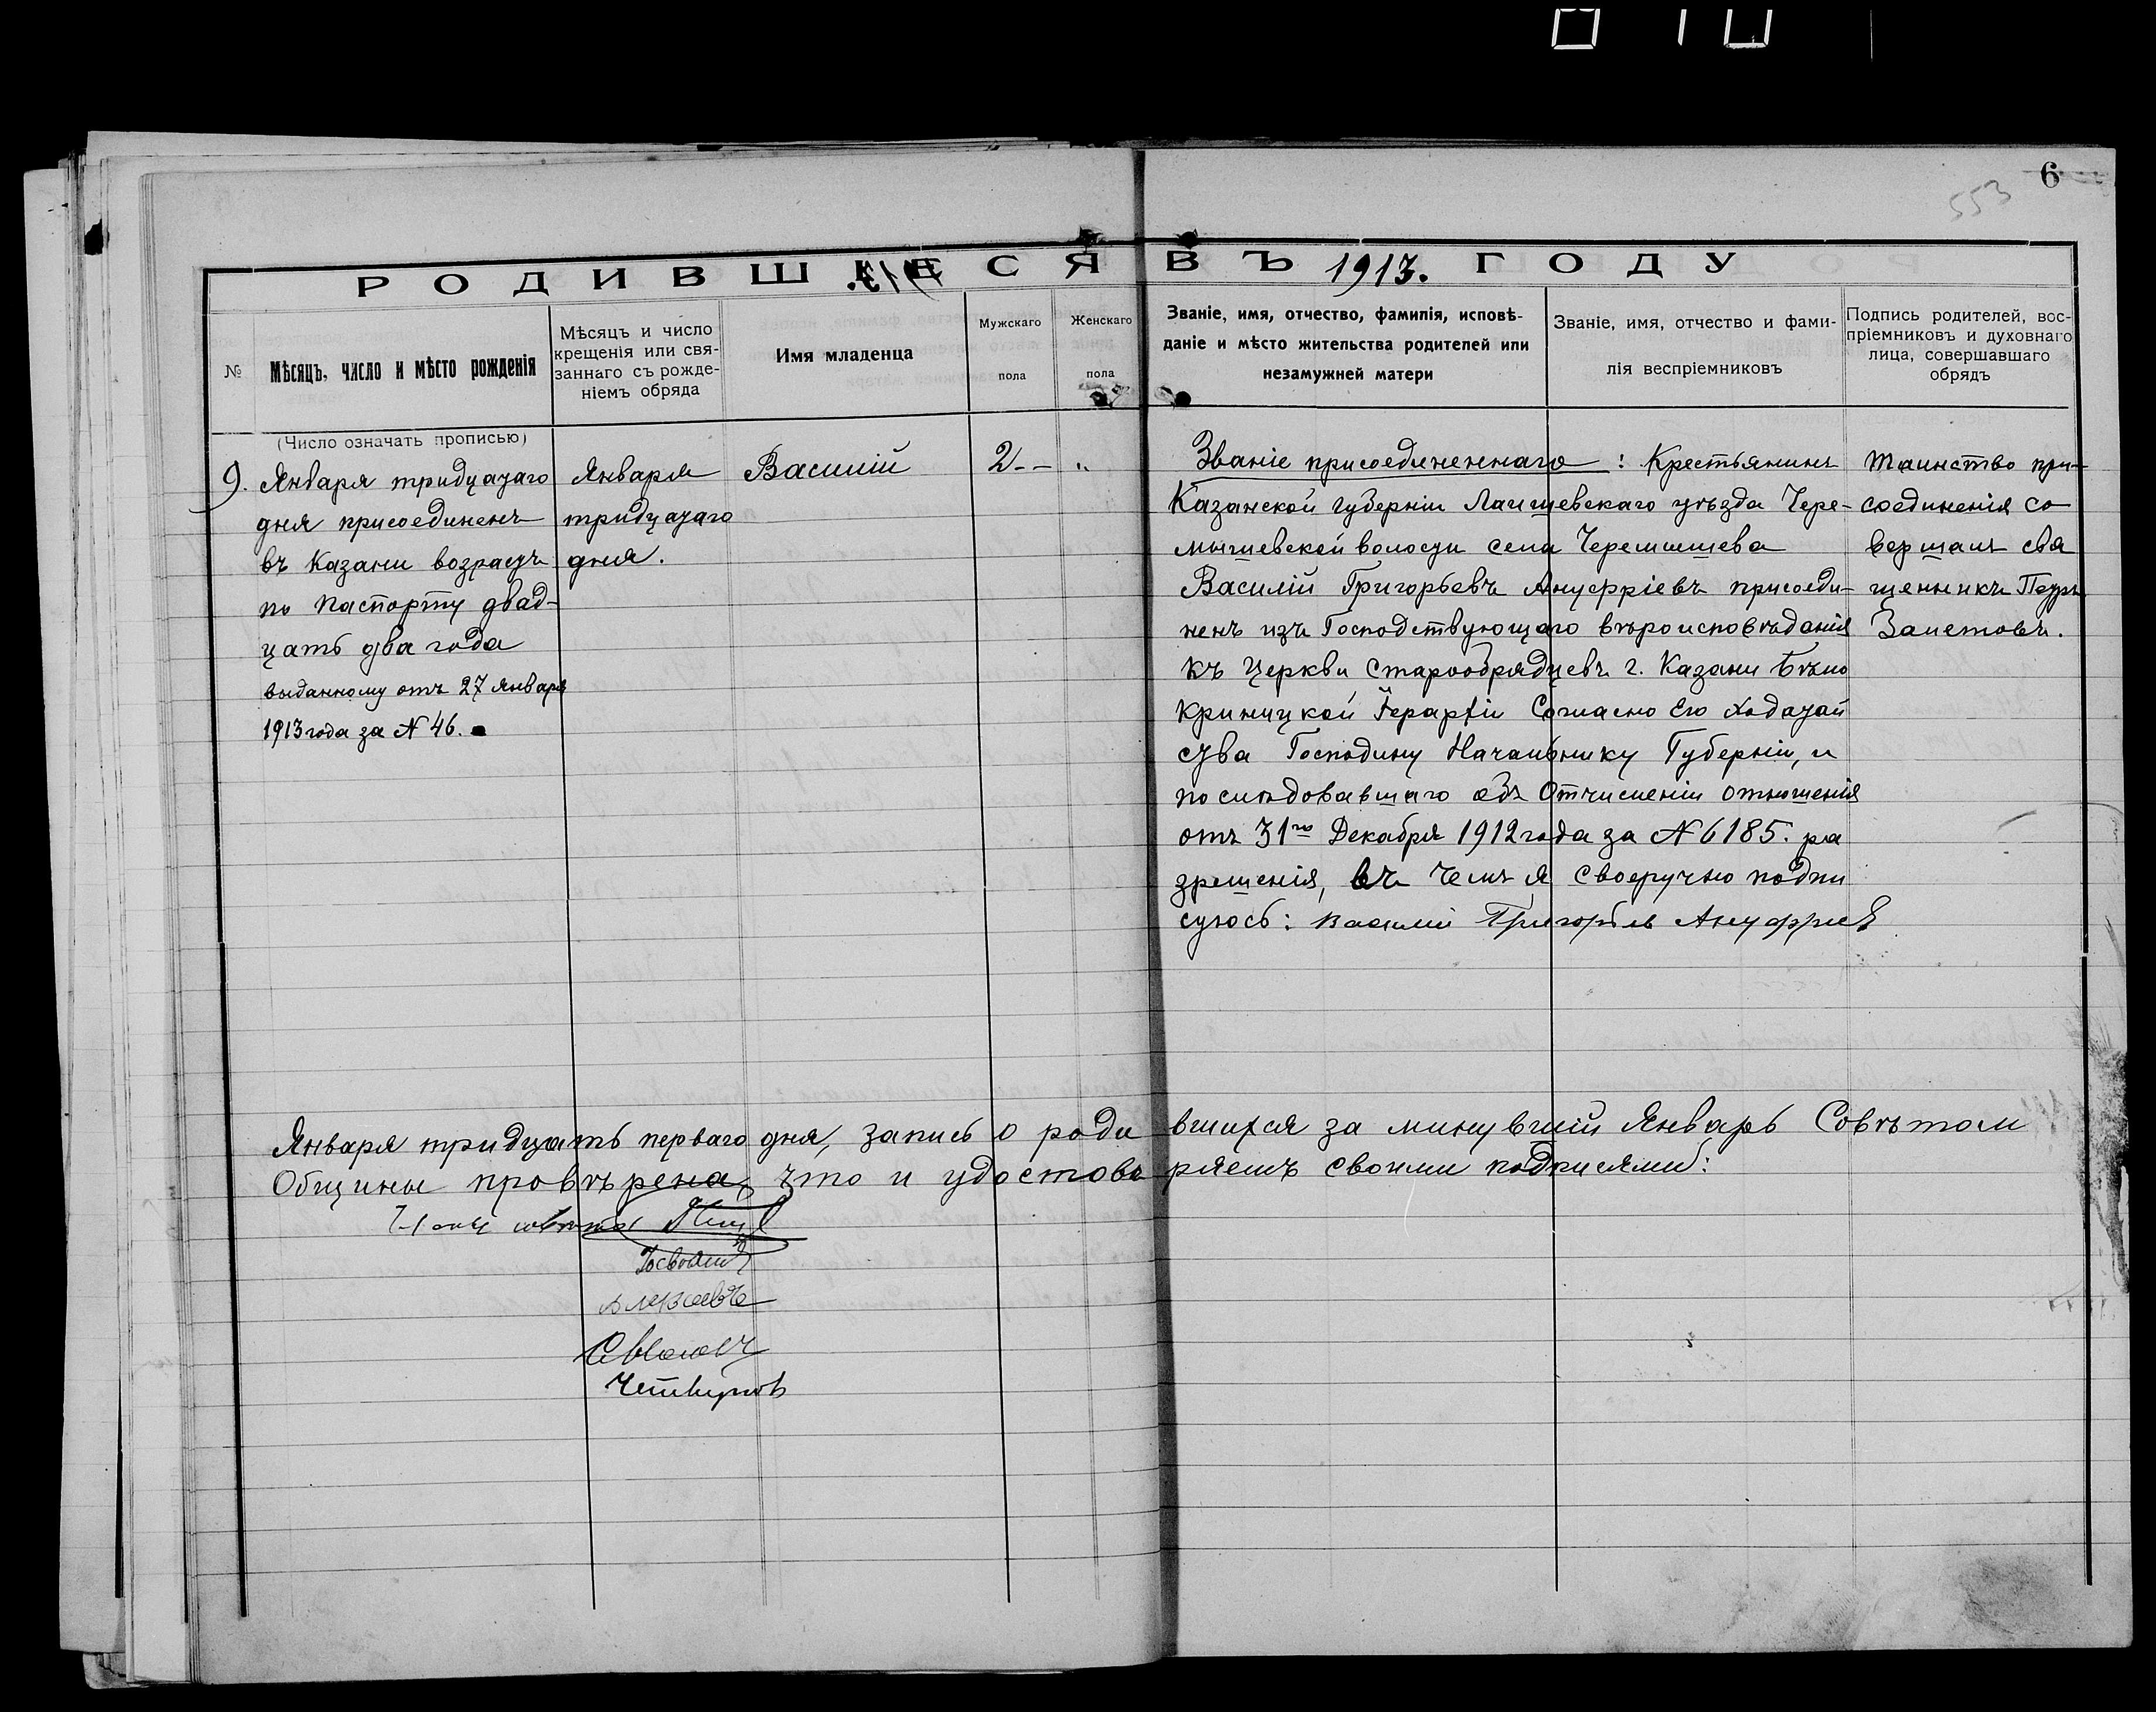 6
553
РОДИВШІЕСЯ ВЪ 1913. ГОДУ
№
Мѣсяцъ, число и мѣсто рожденія
Мѣсяцъ и число
крещенія или свя-
заннаго съ рожде-
ніемъ обряда
Имя младенца
Мужскаго
пола
Женскаго
пола
Званіе, имя, отчество, фамилія, исповѣ-
даніе и мѣсто жительства родителей или
незамужней матери
Званіе, имя, отчество и фами-
лія веспріемниковъ
Подпись родителей, вос-
пріемниковъ и духовнаго
лица, совершавшаго
обрядъ
(Число означать прописью)
9.
Января тридцатаго
дня присоединенъ
въ Казани возрастъ
по паспорту двад-
цать два года
выданному отъ 27 января
1913 года за № 46.
Января
тридцатаго
дня.
Василій
2 - - "
Званіе присоединеннаго: Крестьянинъ
Казанской губерніи Лаишевскаго уѣзда Чере-
мышевской волости села Черемышева
Василій Григорьевъ Ануфріевъ присоеди-
ненъ изъ Господствующаго вѣроисповѣданія
къ Церкви Старообрядцевъ г. Казани Бѣло
криницкой Іерархіи Согласно Его Ходатай
ства Господину Начальнику Губерніи, и
послѣдовавшаго объ Отчисленіи отношенія
отъ 31го Декабря 1912 года за № 6185. ра
зрешенія, въ чемъ я своеручно подпи
суюсь: Василий Григорьев Ануфриев
Таинство при-
соединенія со
вершалъ свя
щенникъ Петръ
Залетовъ.
Января тридцать перваго дня, запись о родившихся за минувшій Январь Совѣтом
Общины провѣрена, что и удостовѣряемъ своими подписями:
совѣта
Четвергов